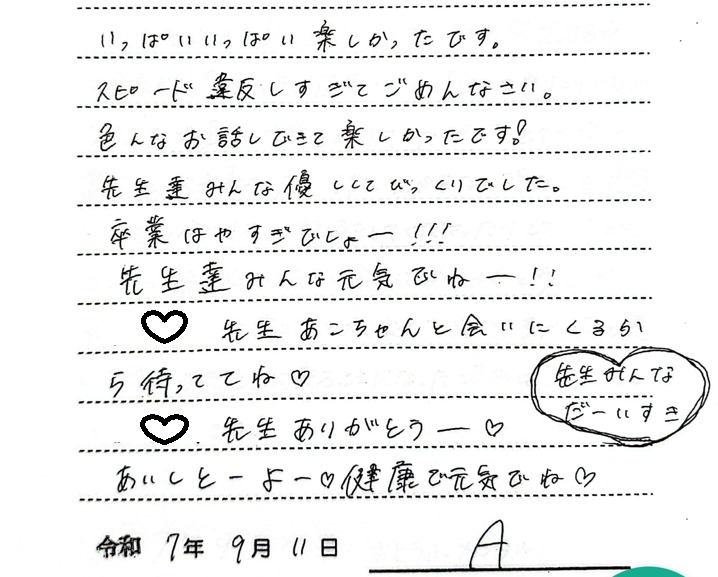 いっぱいいっぱい楽しかったです。
スピード違反しすぎてごめんなさい。
色んなお話しできて楽しかったです!
先生達みんな優ししてびっくりでした。
卒業はやすぎでしょー!!!
先生達みんな元気でねー!!
♡ 先生あこちゃんと会いにくるか
ら待っててね♡
先生みんな
だーいすき
♡ 先生ありがとうー♡
あいしとーよー♡健康で元気でね♡
令和 7年 9月 11日 A